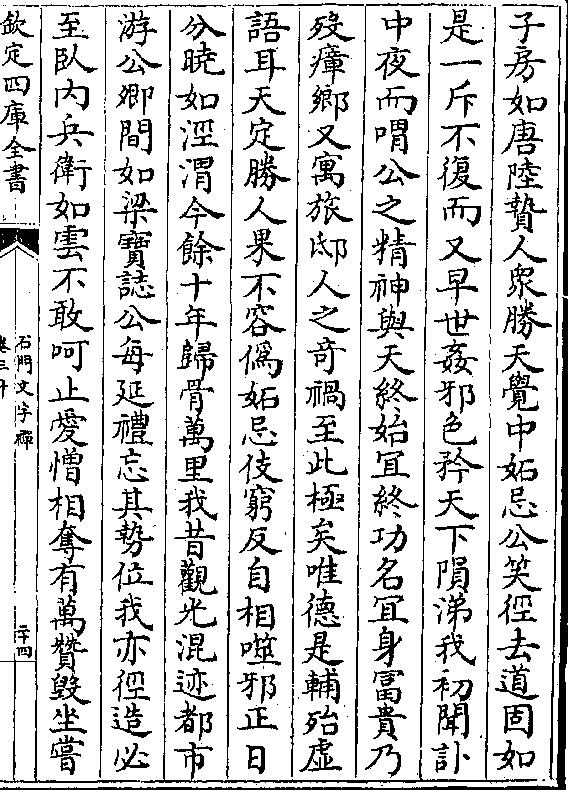 子房如唐陸贄人衆勝天覺中妬忌公笑徑去道固如
是一斥不復而又早世姦邪色矜天下隕涕我初聞訃
中夜而喟公之精神與天終始宜終功名宜身富貴乃
歿瘴鄉又寓旅邸人之竒禍至此極矣唯德是輔殆虚
語耳天定勝人果不容偽妬忌伎窮反自相噬邪正日
分曉如涇渭今餘十年歸骨萬里我昔觀光混迹都市
游公卿間如梁寶誌公每延禮忘其勢位我亦徑造必
至臥内兵衛如雲不敢呵止愛憎相奪有萬贊毁坐嘗
欽定四庫全書
石門文字禪
卷三十
二十四